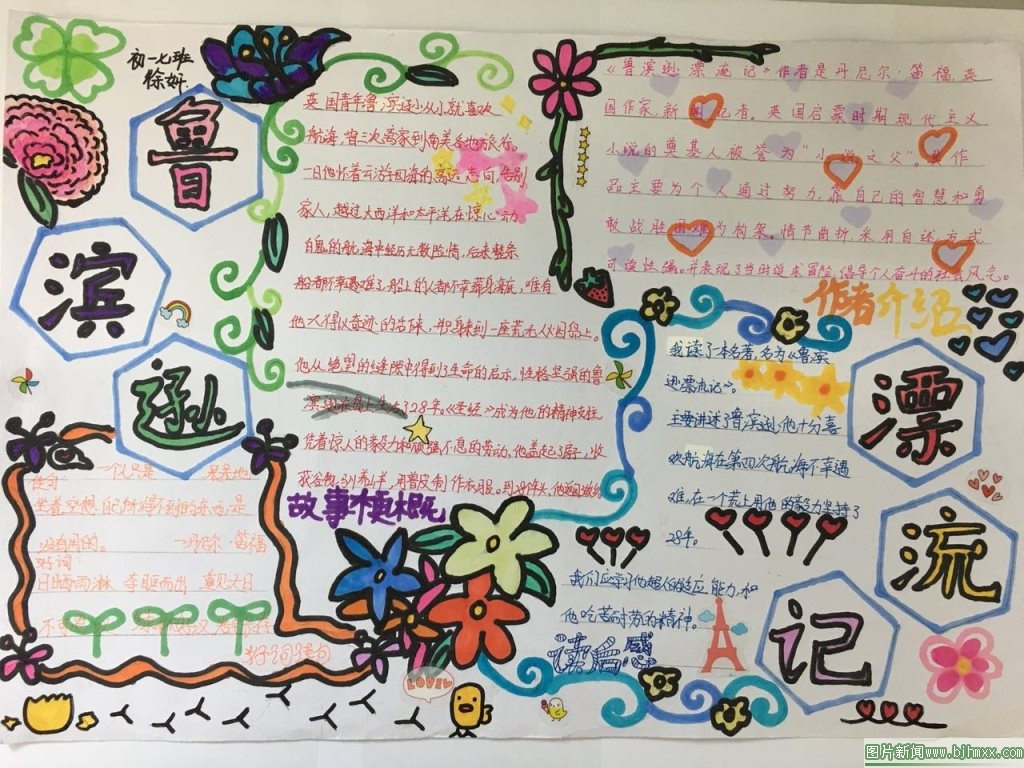 初一七班
徐妍
鲁
滨
逊
漂
流
记
英国青年鲁滨逊从小就喜欢
航海,曾三次离家到南美各地旅行。
一日他怀着云游四海的高远志向,告别
家人,越过大西洋和太平洋,在惊心动
自鬼的航海中经历无数险情,后来整条
船都不幸遇难了,船上的人都不幸葬身海底,唯有
他一人得以奇迹的活下来,只身来到一座荒无人烟的岛上。
他从绝望的缝隙中得到了生命的启示,性格坚强的鲁
滨逊在岛上生活了28年。《圣经》成为他的精神支柱,
凭着惊人的毅力和顽强不息的劳动,他盖起了房子,收
获谷物,驯养山羊,用兽皮制作衣服。
故事梗概
《鲁滨逊漂流记》作者是丹尼尔·笛福,英
国作家,新闻记者。英国启蒙时期现代主义
小说的奠基人,被誉为“小说之父”。其作
品主要为个人通过努力,靠自己的智慧和勇
敢战胜困难为构架。情节曲折,采用自述方式
可读性强。并表现了当时追求冒险,倡导个人奋斗的社会风气。
作者介绍
我读了一本名著,名为《鲁滨
逊漂流记》。
主要讲述了鲁滨逊,他十分喜
欢航海在第四次航海不幸遇
难,在一个荒岛上用他的毅力坚持了
28年。
我们应学习他超强的适应能力,和
他吃苦耐劳的精神。
读后感
坐着空想自己所得不到的东西,是
没有用的。 —丹尼尔·笛福
好词:
日晒雨淋 挺身而出 重见天日
好词佳句
LOVELY
图片新闻www.bjhmxx.com